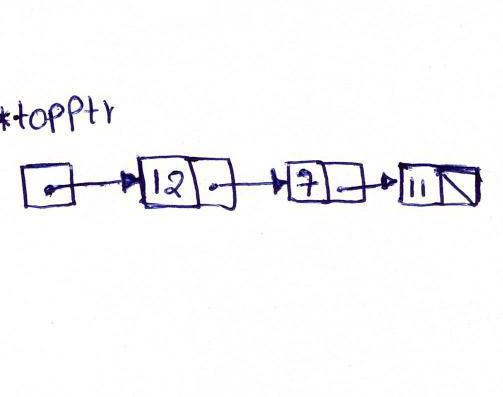 *topptr
12 7 11